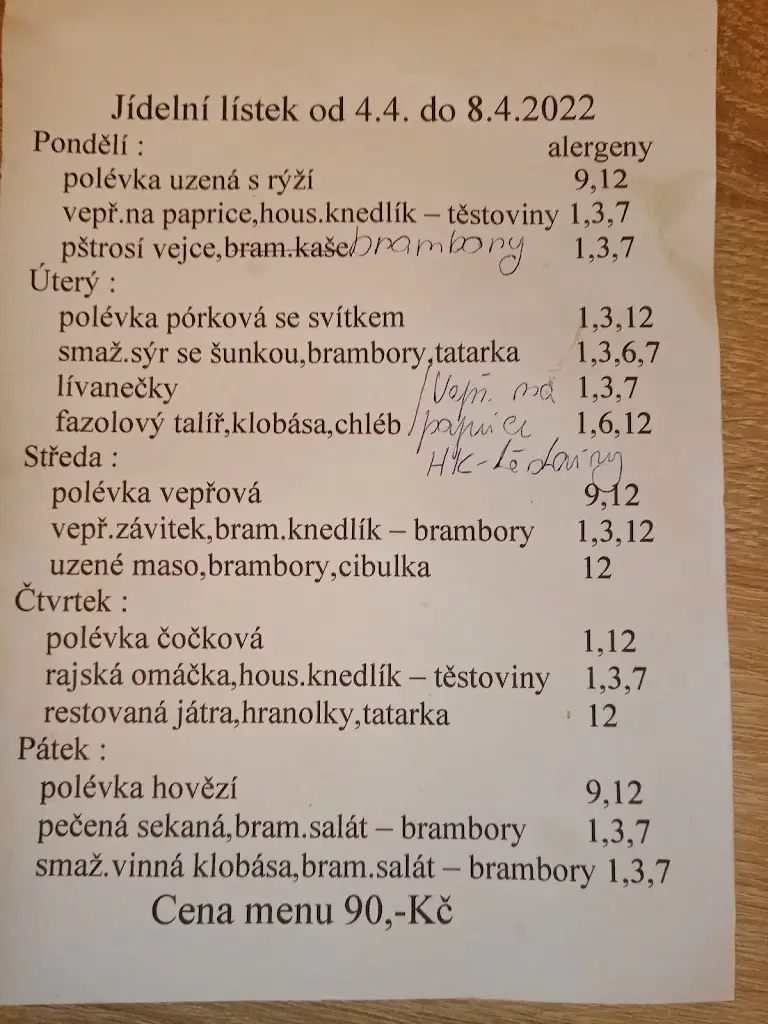 Jídelní lístek od 4.4. do 8.4.2022
Pondělí : alergeny
polévka uzená s rýží 9,12
vepř.na paprice,hous.knedlík – těstoviny 1,3,7
pštrosí vejce,bram.kaše brambory 1,3,7
Úterý :
polévka pórková se svítkem 1,3,12
smaž.sýr se šunkou,brambory,tatarka 1,3,6,7
lívanečky /Vepř. na 1,3,7
fazolový talíř,klobása,chléb /paprice 1,6,12
Středa : HK-těstoviny
polévka vepřová 9,12
vepř.závitek,bram.knedlík – brambory 1,3,12
uzené maso,brambory,cibulka 12
Čtvrtek :
polévka čočková 1,12
rajská omáčka,hous.knedlík – těstoviny 1,3,7
restovaná játra,hranolky,tatarka 12
Pátek :
polévka hovězí 9,12
pečená sekaná,bram.salát – brambory 1,3,7
smaž.vinná klobása,bram.salát – brambory 1,3,7
Cena menu 90,-Kč